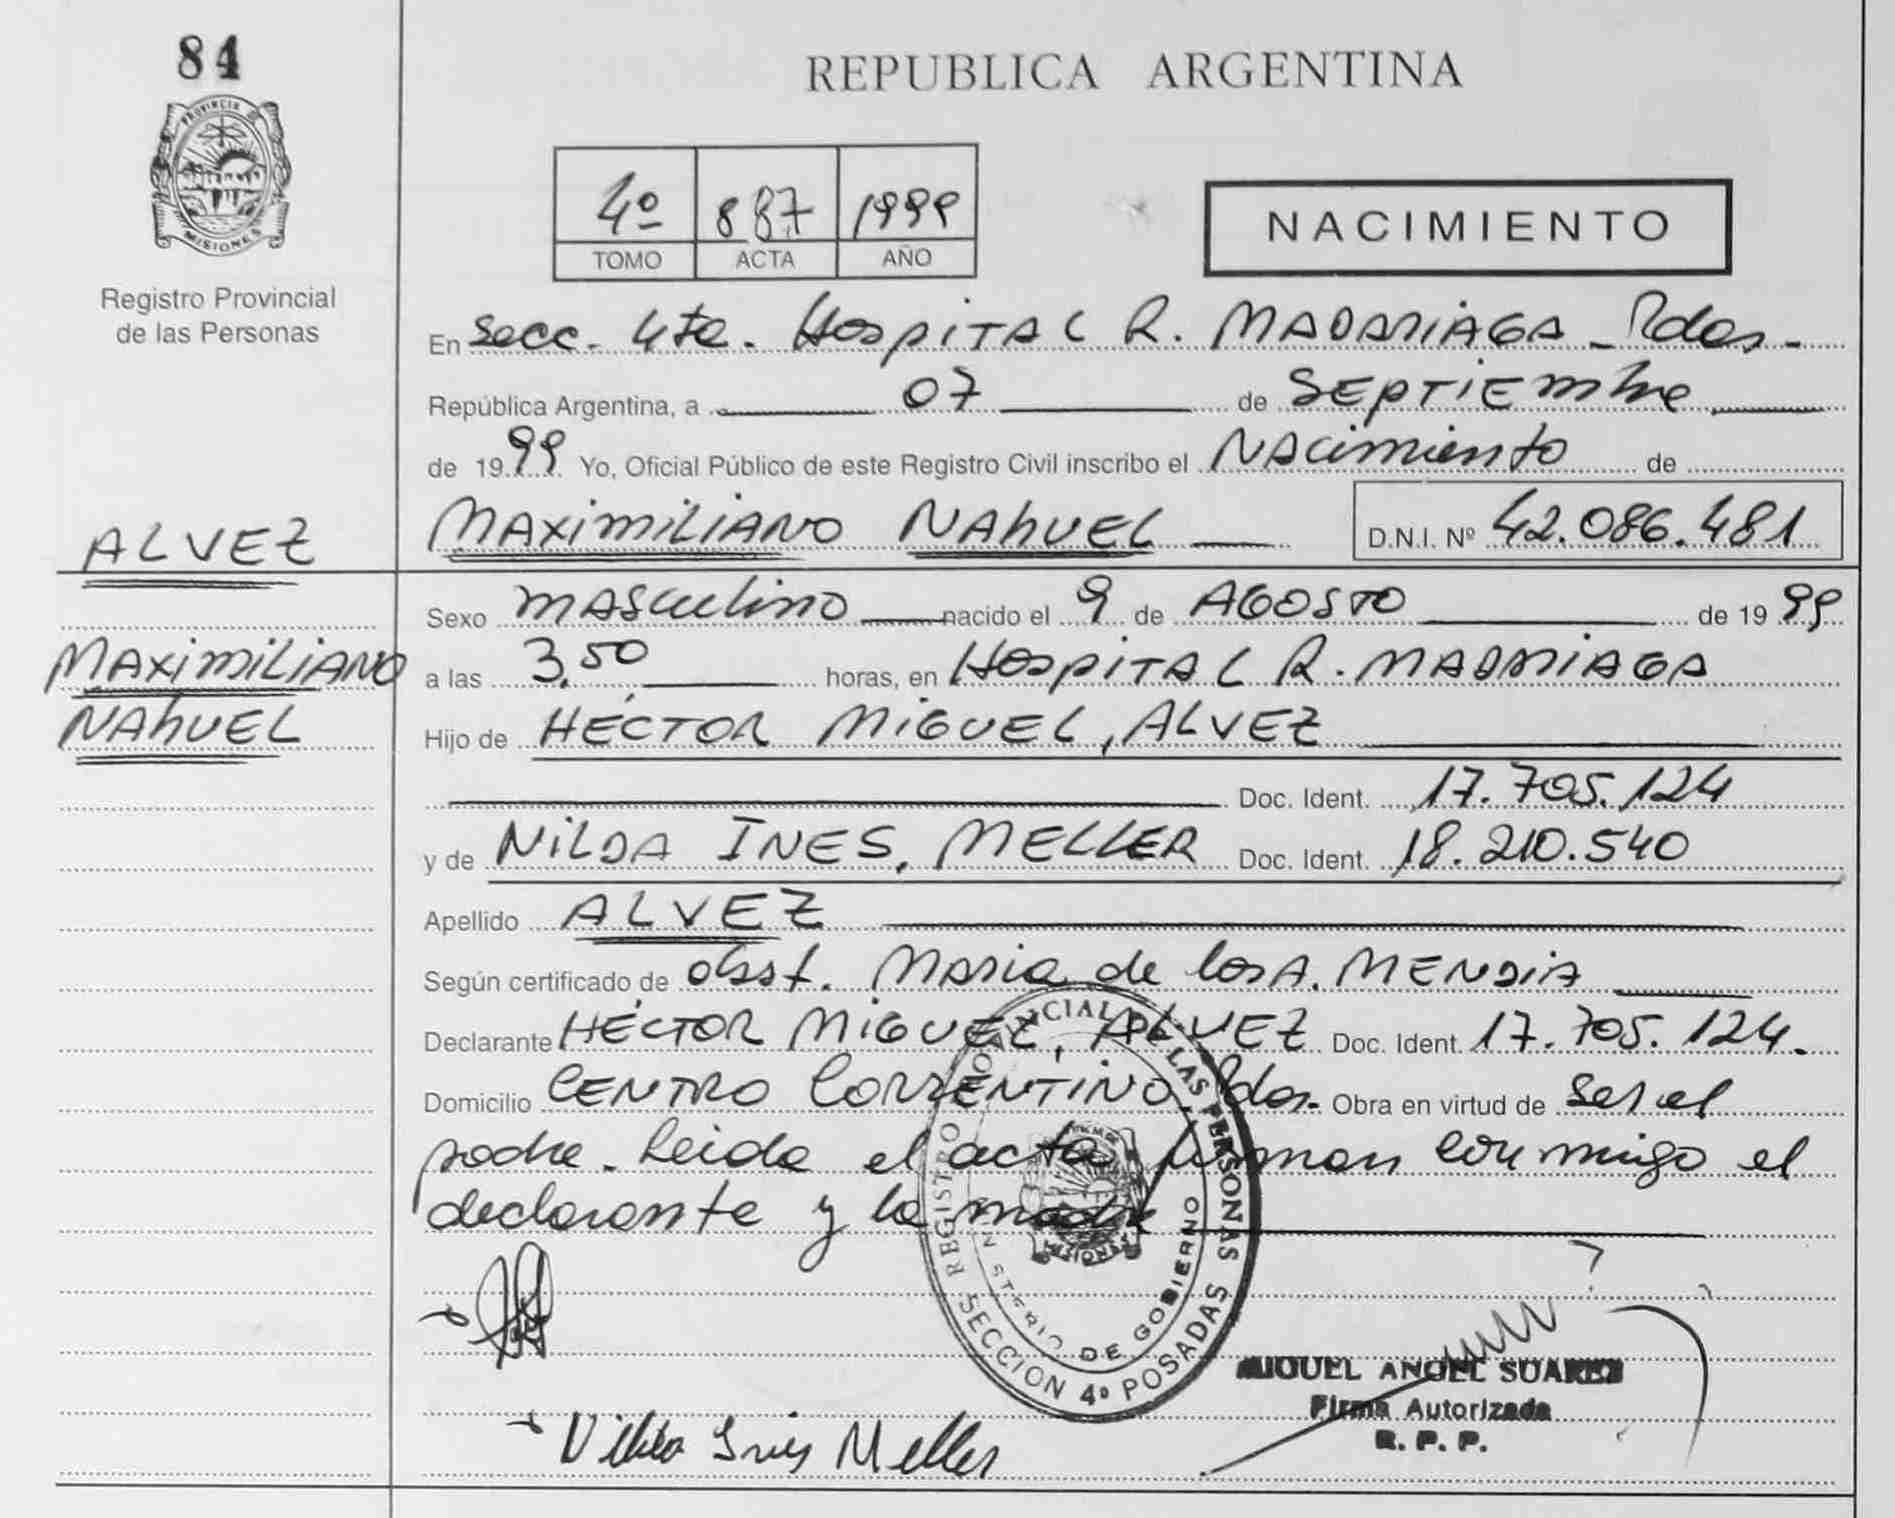 84
PROVINCIA
MISIONES
Registro Provincial
de las Personas
REPUBLICA ARGENTINA
4º 887 1999
TOMO ACTA AÑO
NACIMIENTO
En Secc. 4ta. HOSPITAL R. MADARIAGA - Pdas -
República Argentina, a 07 de SEPTIEmbre
de 1999 Yo, Oficial Público de este Registro Civil inscribo el NAcimiento de
MAXiMiLIANO NAhUEL D.N.I. Nº 42.086.481
ALVEZ
MAXiMiLIANO
NAhUEL
Sexo MASculino nacido el 9 de AGOSTO de 1999
a las 3,50 horas, en HOSPITAL R. MADARIAGA
Hijo de HÉCTOR MIGUEL, ALVEZ
Doc. Ident. 17.705.124
y de NILDA INES, MELLER Doc. Ident. 18.210.540
Apellido ALVEZ
Según certificado de obst. Maria de los A. MENDIA
Declarante HÉCTOR MIGUEL, ALVEZ Doc. Ident. 17.705.124.
Domicilio CENTRO CORRENTINO. Pdas. Obra en virtud de ser el
padre. Leida el acta firman conmigo el
declarante y la madre
REGISTRO PROVINCIAL DE LAS PERSONAS
MINISTERIO DE GOBIERNO
MISIONES
SECCION 4ª POSADAS
MIGUEL ANGEL SUAREZ
Firma Autorizada
R. P. P.
Nilda Inés Meller